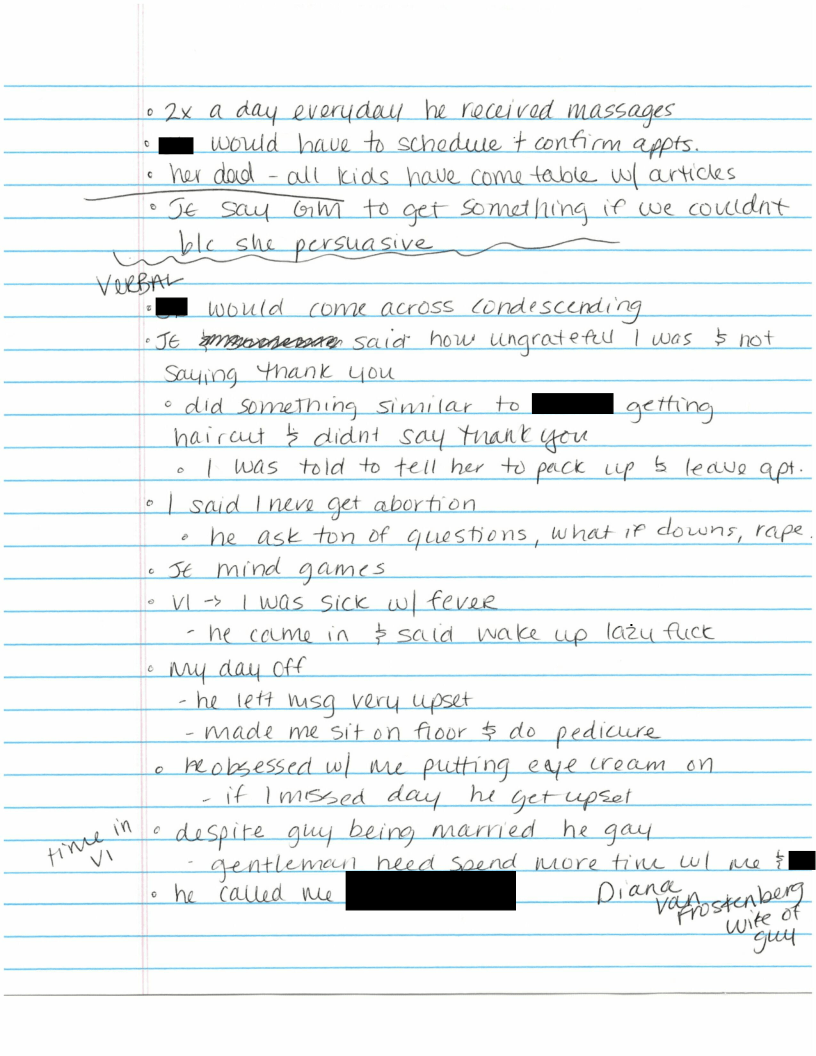 ◦ 2x a day everyday he received massages
◦ would have to schedule + confirm appts.
◦ her dad - all kids have come table w/ articles
◦ JE say GM to get something if we couldnt
b/c she persuasive
VERBAL
◦ would come across condescending
◦ JE said how ungrateful I was & not
saying thank you
◦ did something similar to getting
haircut & didnt say thank you
◦ I was told to tell her to pack up & leave apt.
◦ I said I neve get abortion
◦ he ask ton of questions, what if downs, rape.
◦ JE mind games
◦ VI → I was sick w/ fever
- he came in & said wake up lazy fuck
◦ My day off
- he left msg very upset
- made me sit on floor & do pedicure
◦ he obsessed w/ me putting eye cream on
- if I missed day he get upset
time in
VI
◦ despite guy being married he gay
- gentleman need spend more time w/ me &
◦ he called me
Diana
van
Frostenberg
wife of
guy